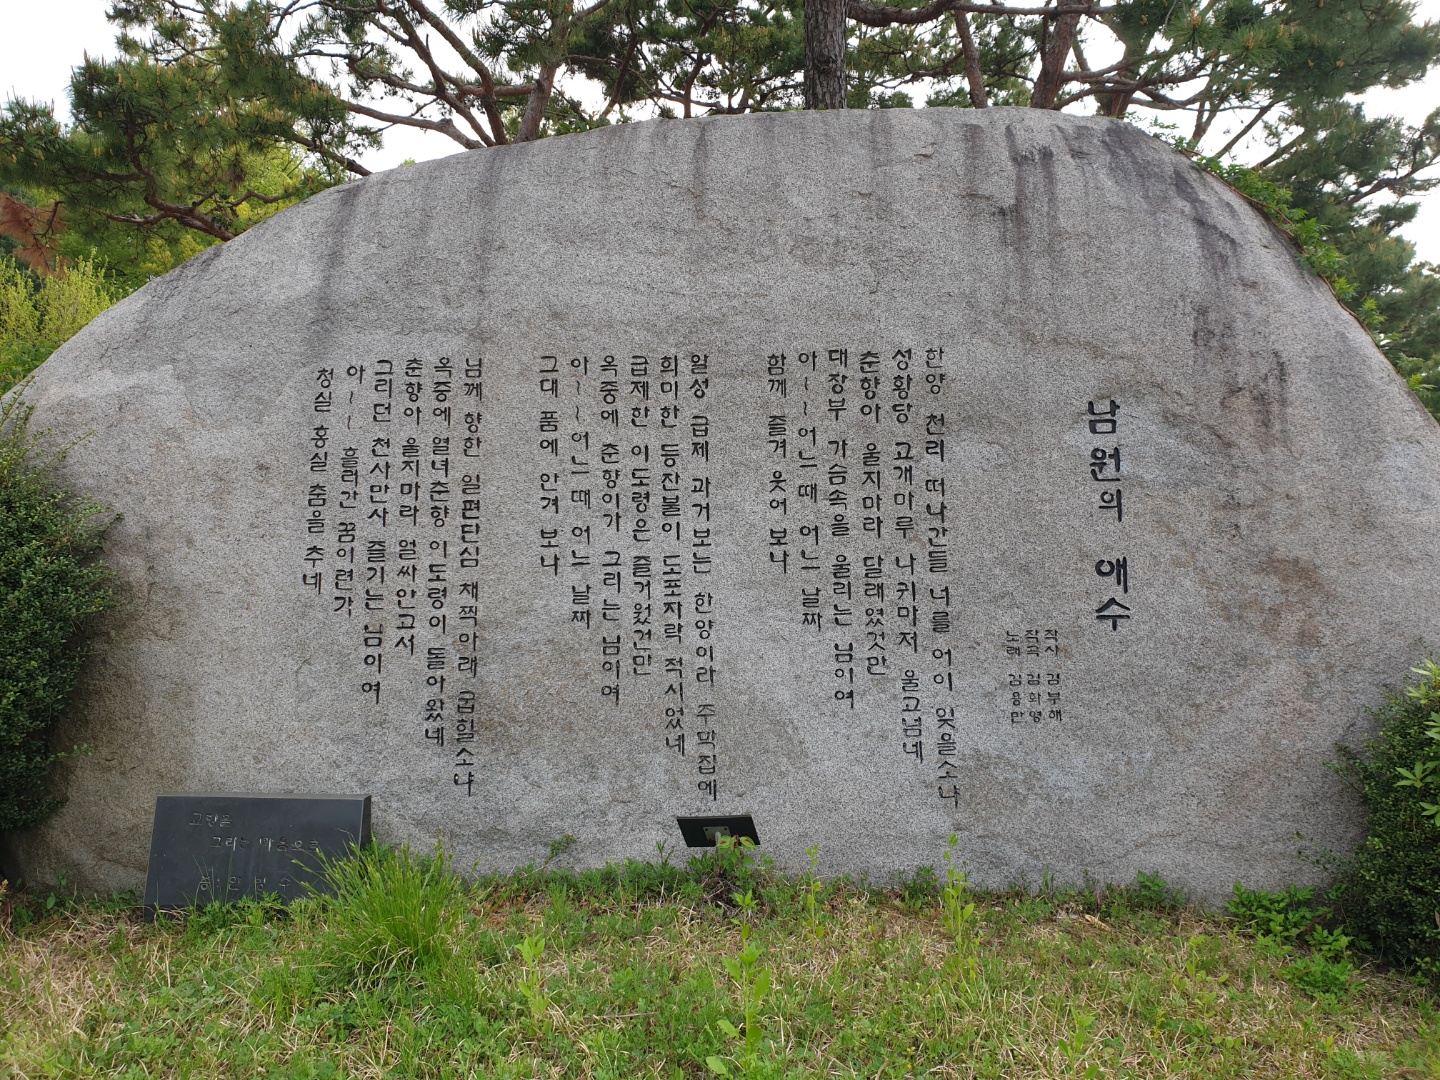 남원의 애수
작사 김부해
작곡 김화영
노래 김용만
한양 천리 떠나간들 너를 어이 잊을소냐
성황당 고개마루 나귀마저 울고넘네
춘향아 울지마라 달래였것만
대장부 가슴속을 울리는 님이여
아~~어느때 어느 날짜
함께 즐겨 웃어 보나
알성 급제 과거보는 한양이라 주막집에
희미한 등잔불이 도포자락 적시었네
급제한 이도령은 즐거웠건만
옥중에 춘향이가 그리는 님이여
아~~어느때 어느 날짜
그대 품에 안겨 보나
님께 향한 일편단심 채찍아래 굽힐소냐
옥중에 열녀춘향 이도령이 돌아왔네
춘향아 울지마라 얼싸안고서
그리던 천사만사 즐기는 님이여
아~~ 흘러간 꿈이련가
청실 홍실 춤을 추네
고향을
그리는 마음으로